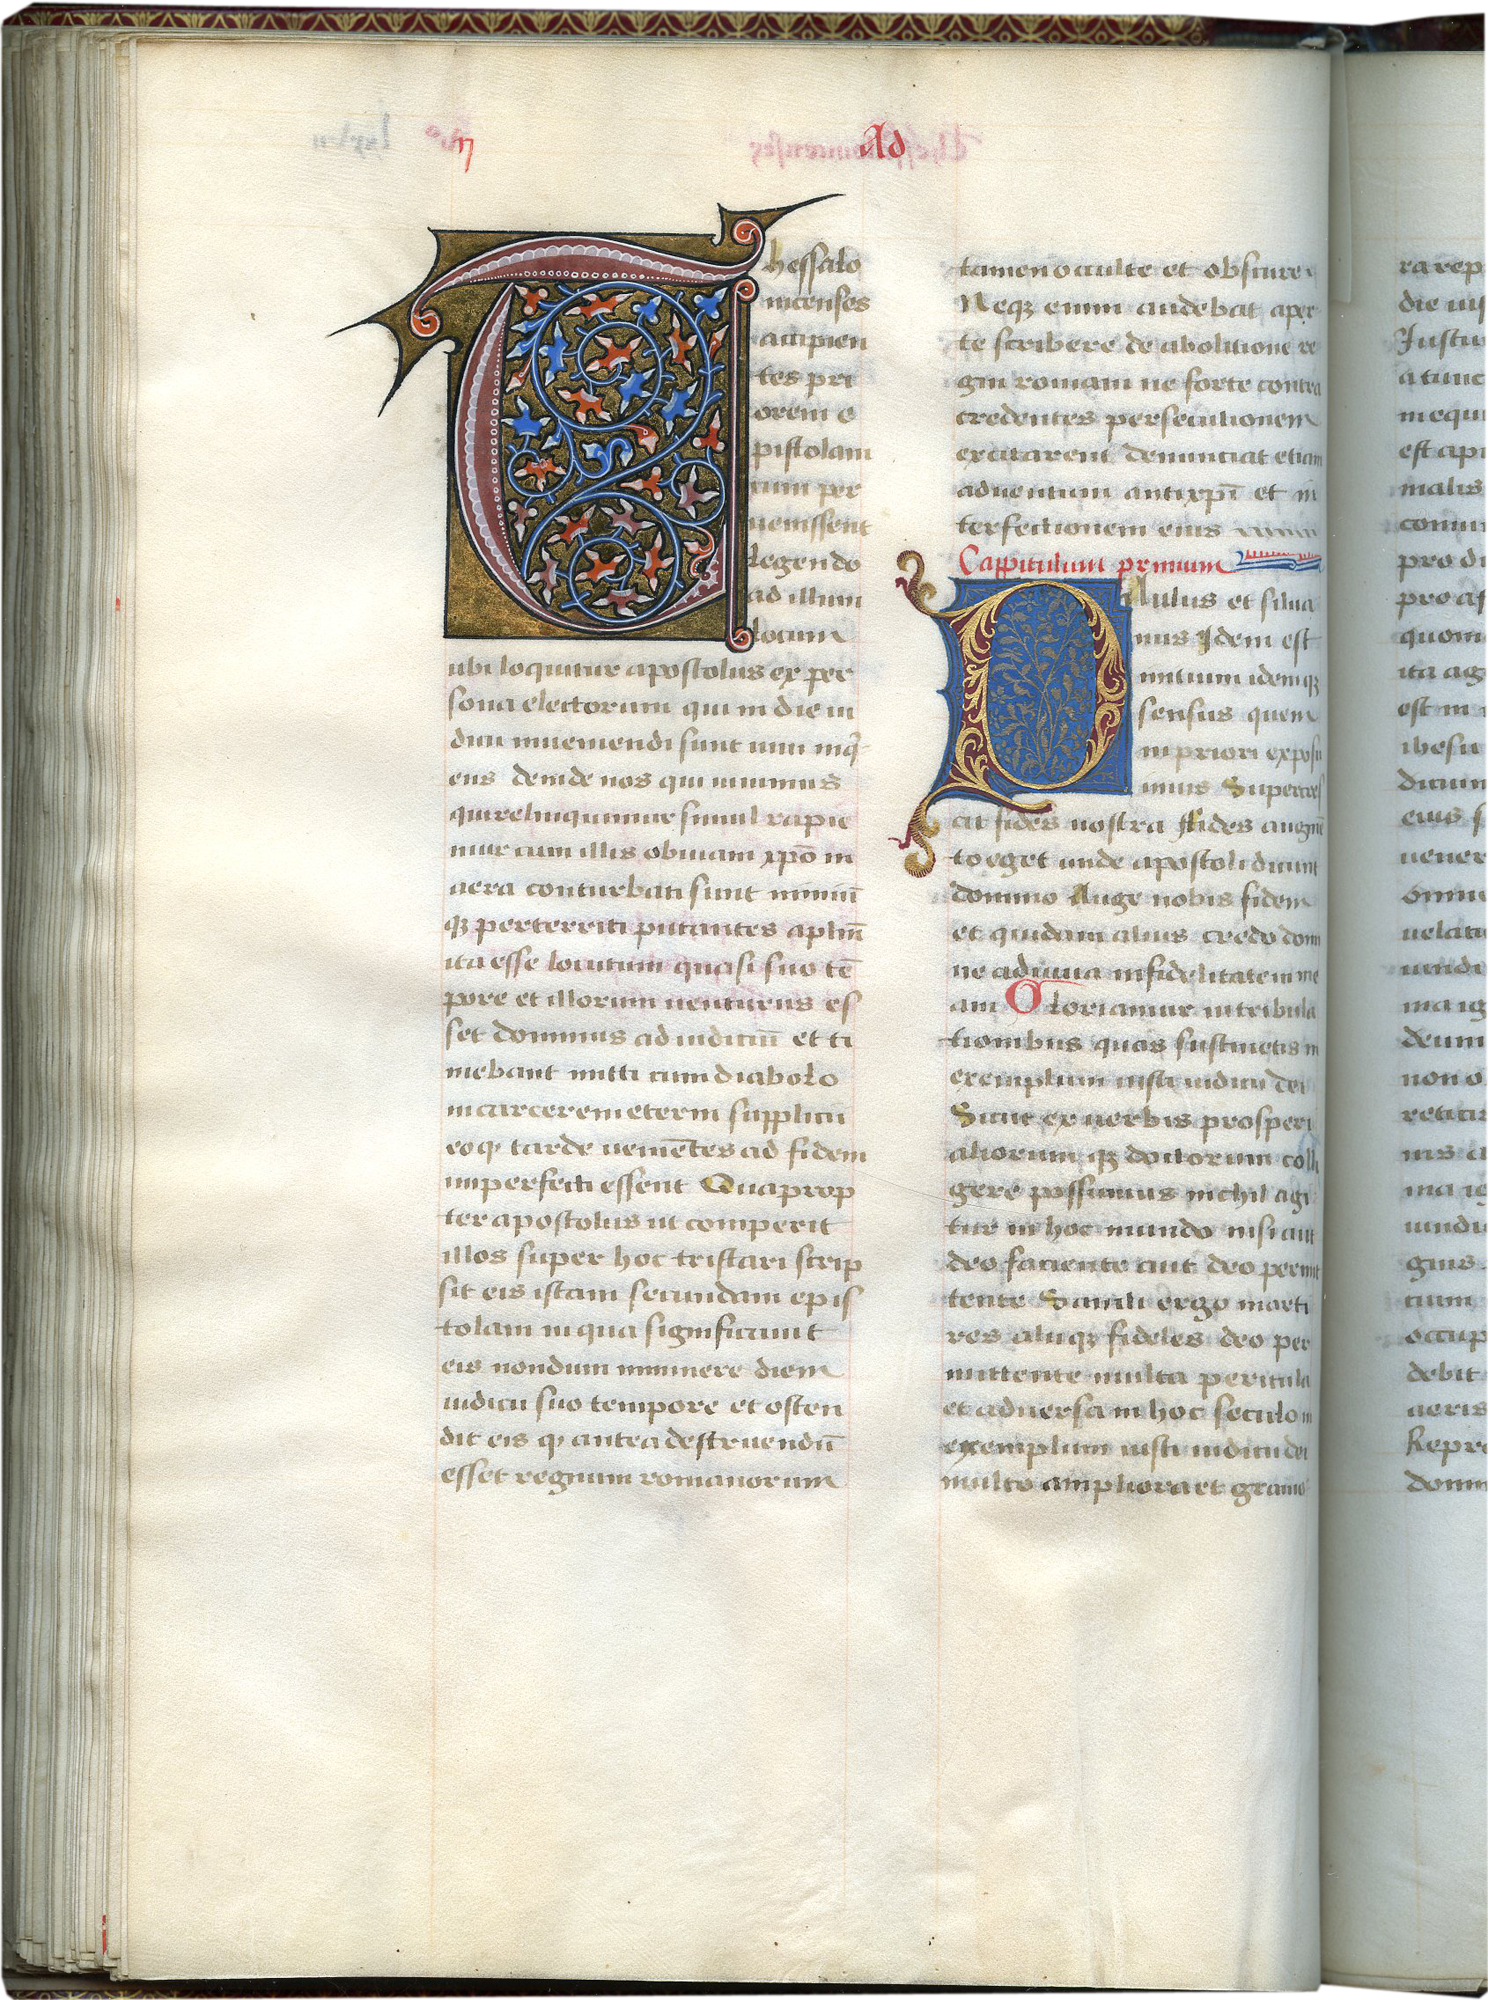 Ad
Thessalo
nicenses
accipien
tes pri
orem e
pistolam
cum per
uenissent
Legendo
ad illum
locum
ubi loquitur apostolus ex per
sona electorum qui in die iu
dicii inueniendi sunt uiui inqͥ
ens deinde nos qui uiuimus
qui relinquimur simul rapie
mur cum illis obuiam xpō in
aera conturbati sunt nimiū
qꝫ perterriti putantes aplīm
ita esse locutum quasi suo tē
pore et illorum uenturus es
set dominus ad iudiciū et ti
mebant mitti cum diabolo
in carcerem eterni supplicii
eo qꝫ tarde uenie͞tes ad fidem
imperfecti essent Quaprop
ter apostolus ut comperit
illos super hoc tristari scrip
sit eis istam secundam epis
tolam in qua significauit
eis nondum imminere diem
iudicii suo tempore et osten
dit eis qꝫ antea destruendū
esset regnum romanorum
tamen occulte et obscure
Neqꝫ enim audebat aper
te scribere de abolitione re
gni romani ne forte contra
credentes persecutionem
excitarent denunciat etiam
aduentum antixp̄i et in
terfectionem eius
Cappitulum primum
Paulus et silua
nus Idem est
initium idemqꝫ
sensus quem
in priori exposu
imus Supercres
cit fides uostra Fides augmē
to eget unde apostoli dicunt
domino Auge nobis fidem
et quidam alius credo domi
ne adiuua infidelitatem me
am Gloriamur in tribula
tionibus quas sustinetis in
exemplum iusti iudicii dei
Sicut ex uerbis prosperi
aliorumqꝫ doctorum colli
gere possumus nichil agi
tur in hoc mundo nisi aut
deo faciente aut deo permit
tente Sancti ergo marti
res aliiqꝫ fideles deo per
mittente multa pericula
et aduersa in hoc seculo in
exemplum iusti iudicii dei
multo ampliora et grauio
ra rep
die ius
Iustu
a tunc
in equi
est ap
malis
pro di
pro af
quom
ita ag
est in
ihesu
dicium
eius s
uener
omni
uelati
uindi
ma ig
deum
non o
nis a
ma ig
uindi
gnis
cium
occup
debit
aeris
Repr
domin